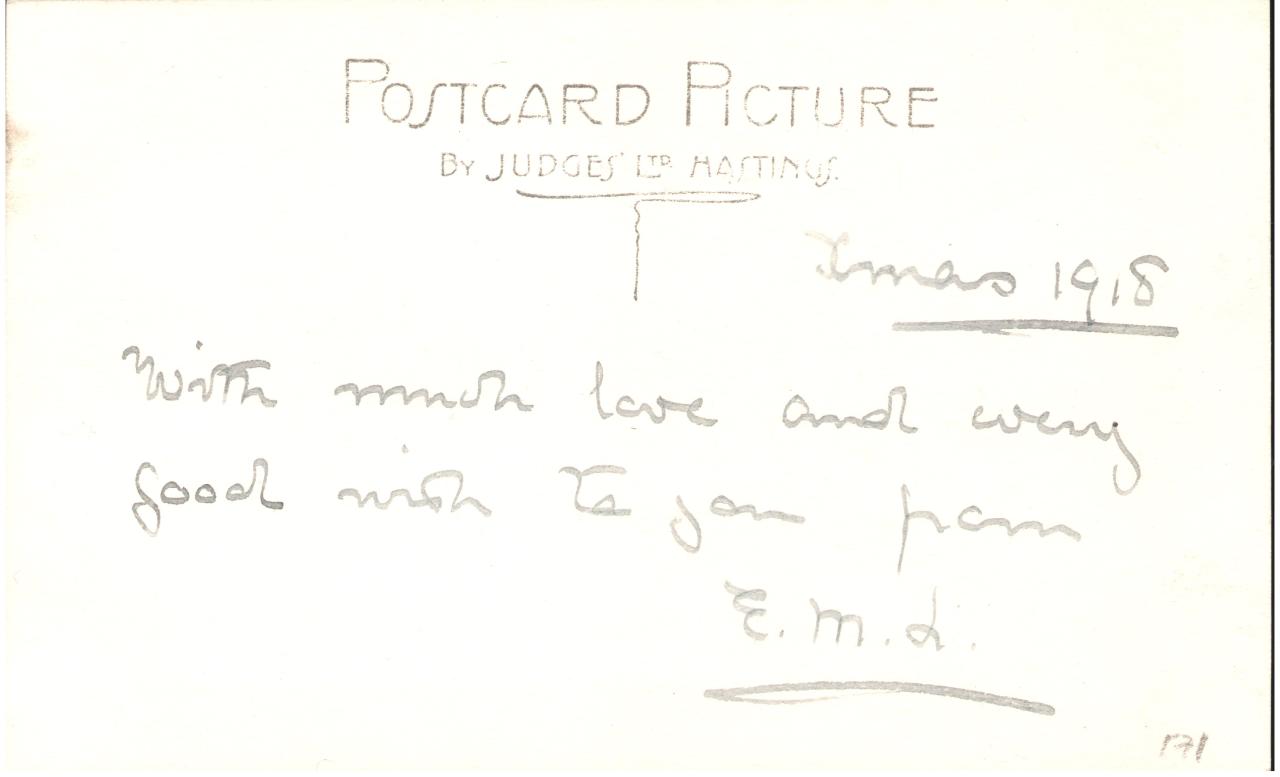 POSTCARD PICTURE
BY JUDGES' LTD HASTINGS.
Xmas 1918
With much love and every
good wish to you from
E. M. L.
171